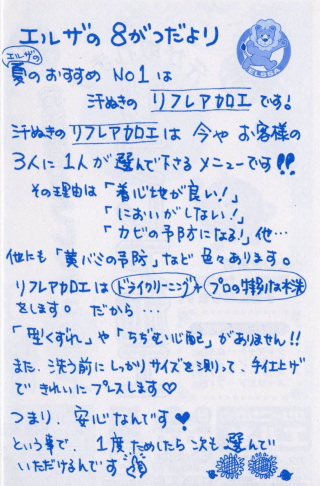 エルザの8がつだより
ELSSA
エルザの
夏のおすすめ NO1は
汗ぬきの リフレア加工 です!
汗ぬきのリフレア加工は 今や お客様の
3人に1人が選んで下さるメニューです!!
その理由は「着心地が良い!」
「においがしない!」
「カビの予防になる!」他…
他にも「黄バミの予防」など色々あります。
リフレア加工はドライクリーニング+プロの特別な水洗
をします。だから…
「型くずれ」や「ちぢむ心配」がありません!!
また、洗う前にしっかりサイズを測って、手仕上げ
で きれいにプレスします♡
つまり、安心なんです♥
という事で、1度ためしたら次も選んで
いただけるんです